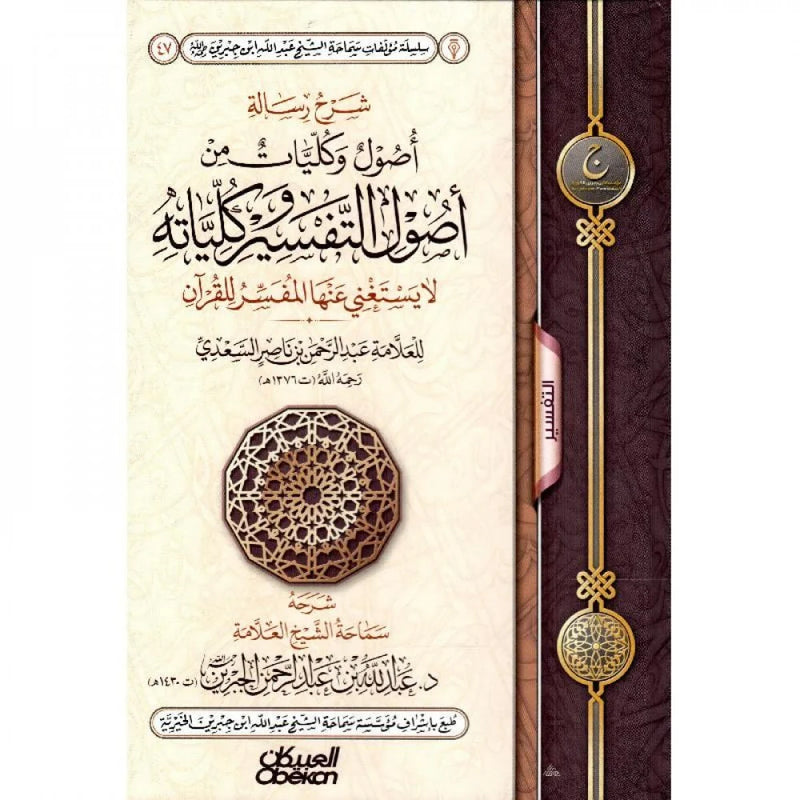 سلسلة مؤلفات سماحة الشيخ عبد الله ابن جبرين رحمه الله ٤٧
شَرْحُ رِسَالَةِ
أُصُولٌ وَكُلِّيَّاتٌ مِنْ
أُصُولِ التَّفْسِيرِ وَكُلِّيَّاتِهِ
لَا يَسْتَغْنِي عَنْهَا المُفَسِّرُ لِلْقُرْآنِ
لِلْعَلَّامَةِ عَبْدِ الرَّحْمَنِ بْنِ نَاصِرٍ السَّعْدِيِّ
رَحِمَهُ اللَّهُ (ت ١٣٧٦هـ)
شَرَحَهُ
سَمَاحَةُ الشَّيْخِ العَلَّامَةِ
د. عَبْدُ اللَّهِ بْنُ عَبْدِ الرَّحْمَنِ الجِبْرِين رحمه الله (ت ١٤٣٠هـ)
طُبِعَ بِإِشْرَافِ مُؤَسَّسَةِ سَمَاحَةِ الشَّيْخِ عَبْدِ اللَّهِ ابْنِ جِبْرِين الخَيْرِيَّةِ
العبيكان
Obekan
ج
التفسير